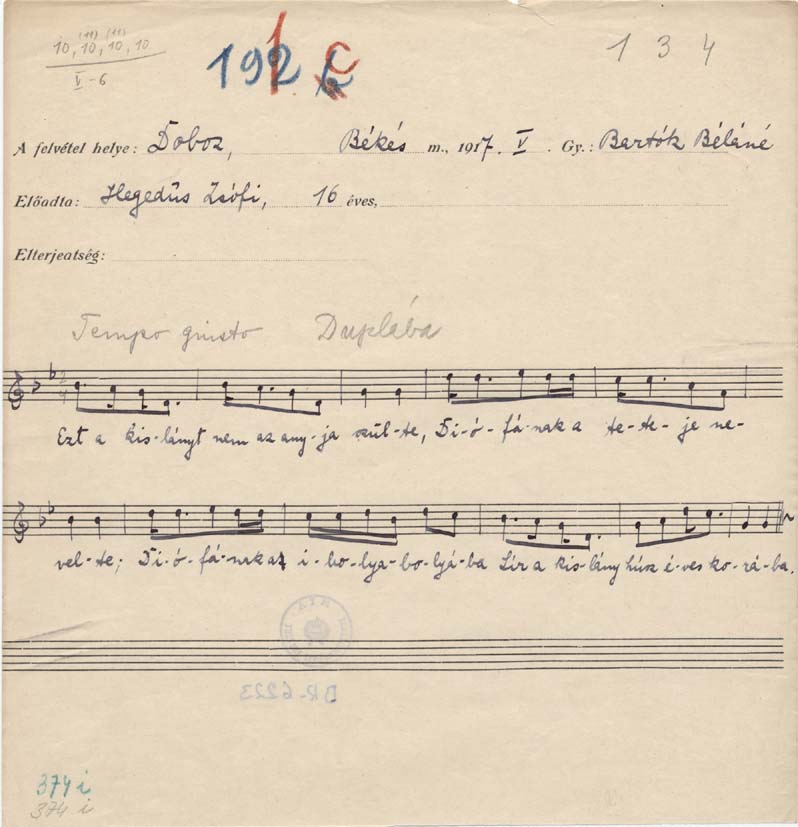 (11) (11)
10, 10, 10, 10
V-6
1 3 4
A felvétel helye: Doboz, Békés m., 1917. V. Gy.: Bartók Béláné
Előadta: Hegedűs Zsófi, 16 éves,
Elterjedtség:
Tempo giusto Duplába
2
4
Ezt a kis-lányt nem az any-ja szül-te, Di-ó-fá-nak a te-te-je ne-
vel-te; Di-ó-fá-nak az i-bo-lya-bo-lyá-ba Sír a kis-lány húsz é-ves ko-rá-ba.
DR-6223
374 i
374 i